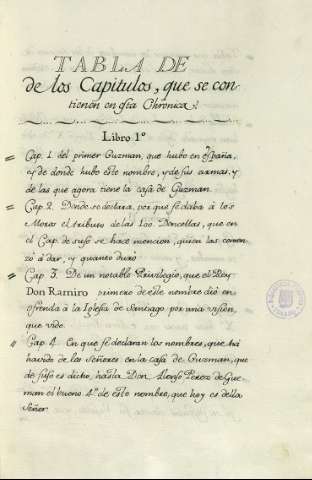 TABLA DE
de los Capitulos, que se con
tienen en esta Chronica.
Libro 1º
Cap. 1. del primer Guzman, que hubo en España,
y de donde hubo este nombre, y de sus armas, y
de las que agora tiene la casa de Guzman.
Cap. 2. Donde se declara, por que se daba a los
Moros el tributo de las 100. Doncellas, que en
el Cap. de suso se hace mencion, quien las comen
zó á dar, y quanto duró
Cap. 3. De un notable Privilegio, que el Rey
Don Ramiro primero de este nombre dió en
ofrenda á la Iglesia de Santiago por una vision,
que vide.
Cap. 4. En que se declaran los nombres, que há
havido de los Señores en la casa de Guzman, que
de suso es dicho, hasta Don Alonso Perez de Guz
man el bueno 4º de este nombre, que hoy es della
Señor